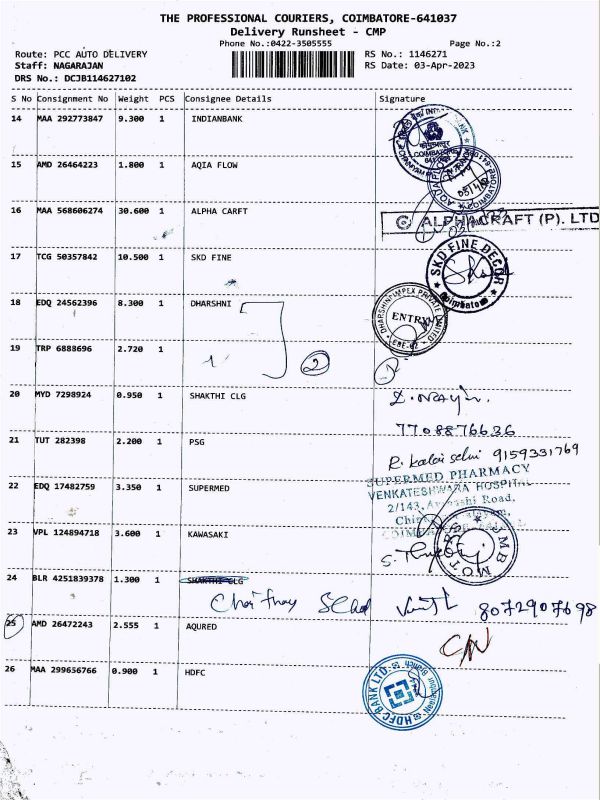 THE PROFESSIONAL COURIERS, COIMBATORE-641037
Delivery Runsheet - CMP
Phone No.:0422-3505555
Page No.:2
Route: PCC AUTO DELIVERY
RS No.: 1146271
Staff: NAGARAJAN
RS Date: 03-Apr-2023
DRS No.: DCJB114627102
S No Consignment No Weight PCS Consignee Details Signature
14 MAA 292773847 9.300 1 INDIANBANK
COIMBATORE
15 AMD 26464223 1.800 1 AQIA FLOW
16 MAA 568606274 30.600 1 ALPHA CARFT
ALPHACRAFT (P). LTD
17 TCG 50357842 10.500 1 SKD FINE
SKD FINE DECOR
Coimbatore
18 EDQ 24562396 8.300 1 DHARSHNI
DHARSHINI IMPEX PRIVATE LIMITED
ENTRY
19 TRP 6888696 2.720 1
2
20 MYD 7298924 0.950 1 SHAKTHI CLG
7708876636
21 TUT 282398 2.200 1 PSG
R. Kalai Selvi 9159331769
SUPERMED PHARMACY
VENKATESHWARA HOSPITAL
2/143, Avinashi Road,
22 EDQ 17482759 3.350 1 SUPERMED
23 VPL 124894718 3.600 1 KAWASAKI
JMB MOTORS
24 BLR 4251839378 1.300 1 SHAKTHI CLG
8072907698
25 AMD 26472243 2.555 1 AQURED
C/N
26 MAA 299656766 0.900 1 HDFC
HDFC BANK LTD.